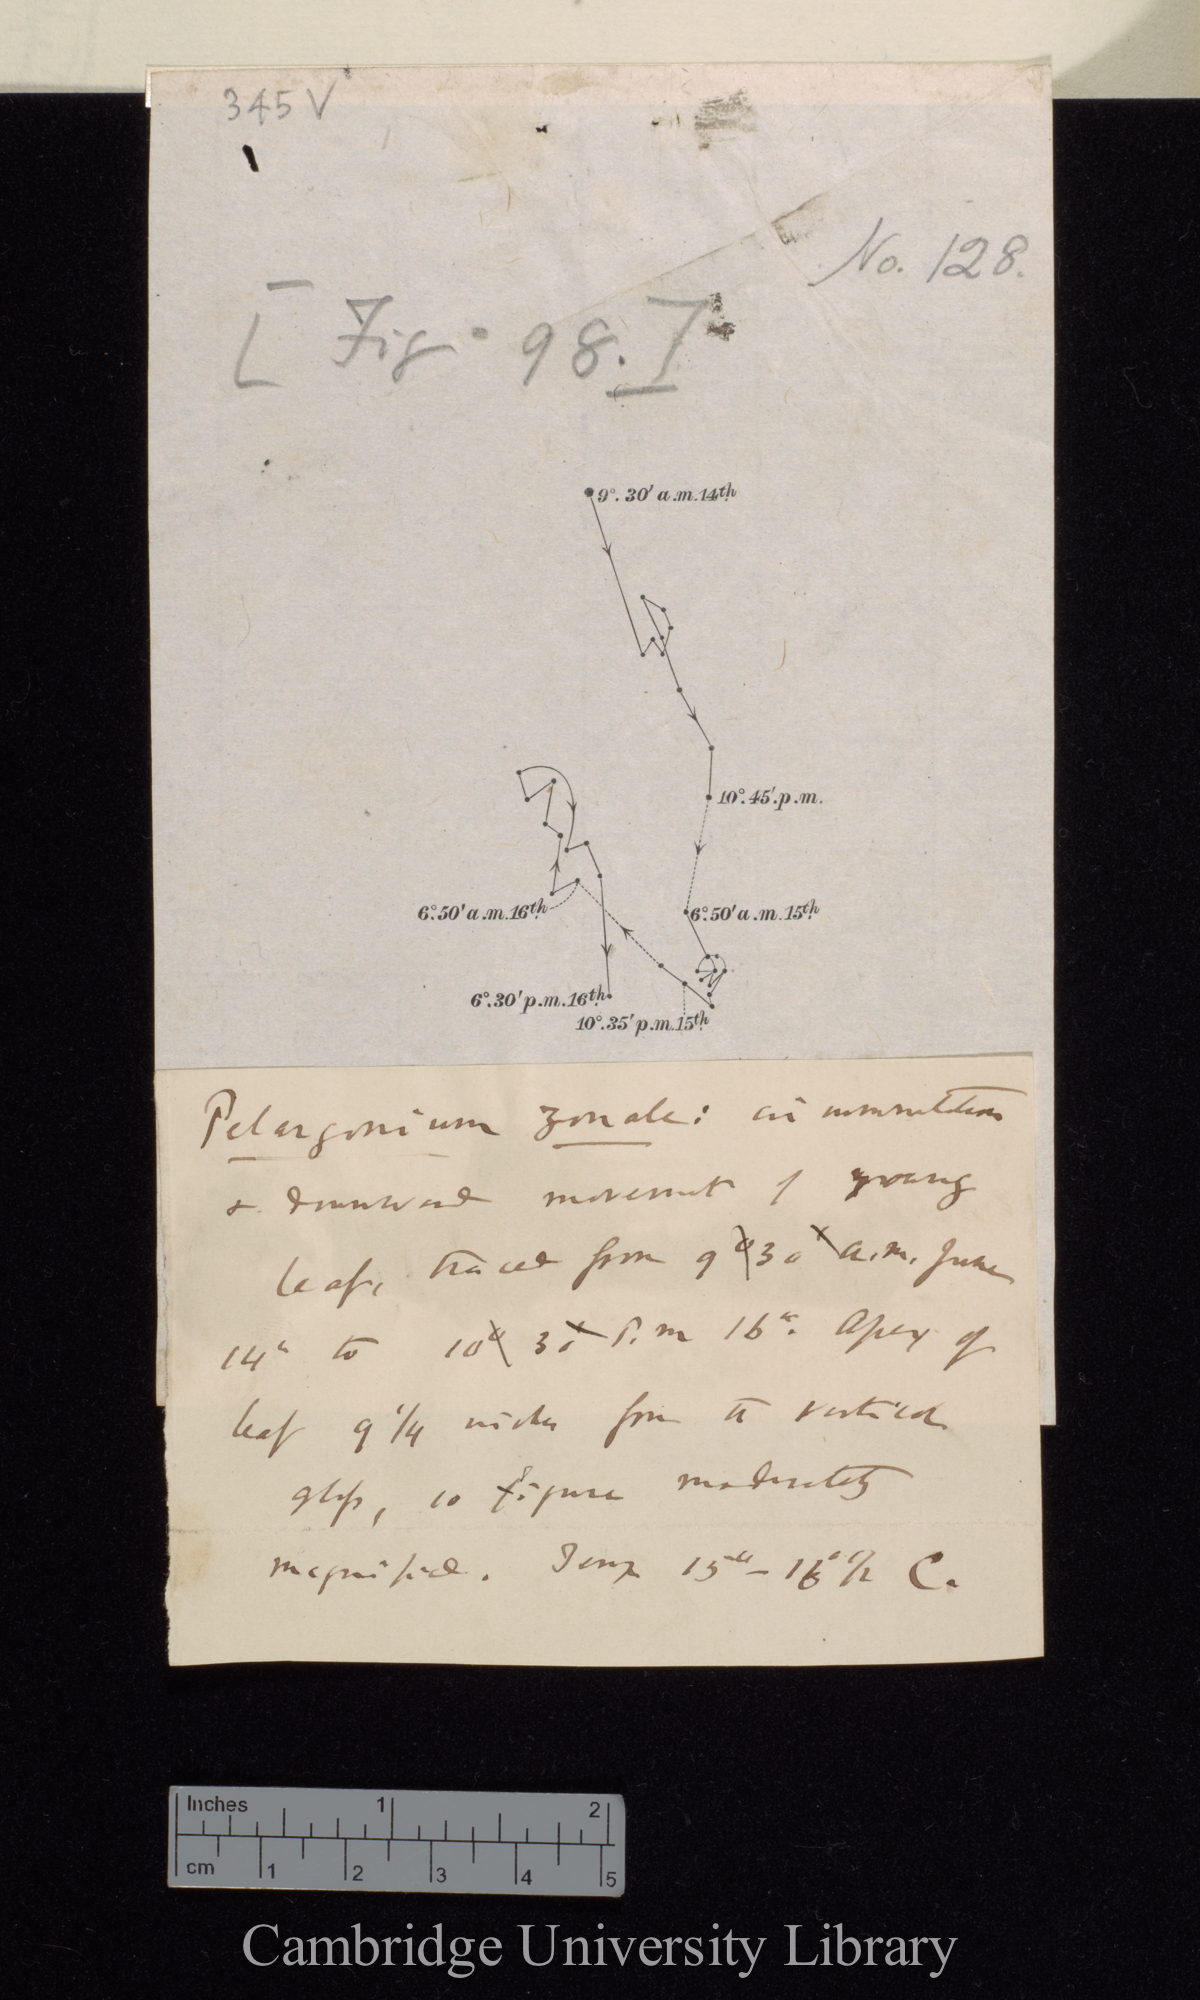 345 V
No. 128.
[Fig. 98.]
9°. 30' a.m. 14th
10°. 45'. p.m.
6°. 50' a.m. 16th
6°. 50' a.m. 15th
6°. 30' p.m. 16th
10°. 35' p.m. 15th
Pelargonium zonale: circumnutation
& downward movement of young
leaf, traced from 9° 30' a.m. June
14th to 10° 30' P.m 16th. Apex of
leaf 9 1/4 inches from the vertical
glass, so figure moderately
magnified. Temp 15° – 16° 1/2 C.
Inches 1 2
cm 1 2 3 4 5
Cambridge University Library